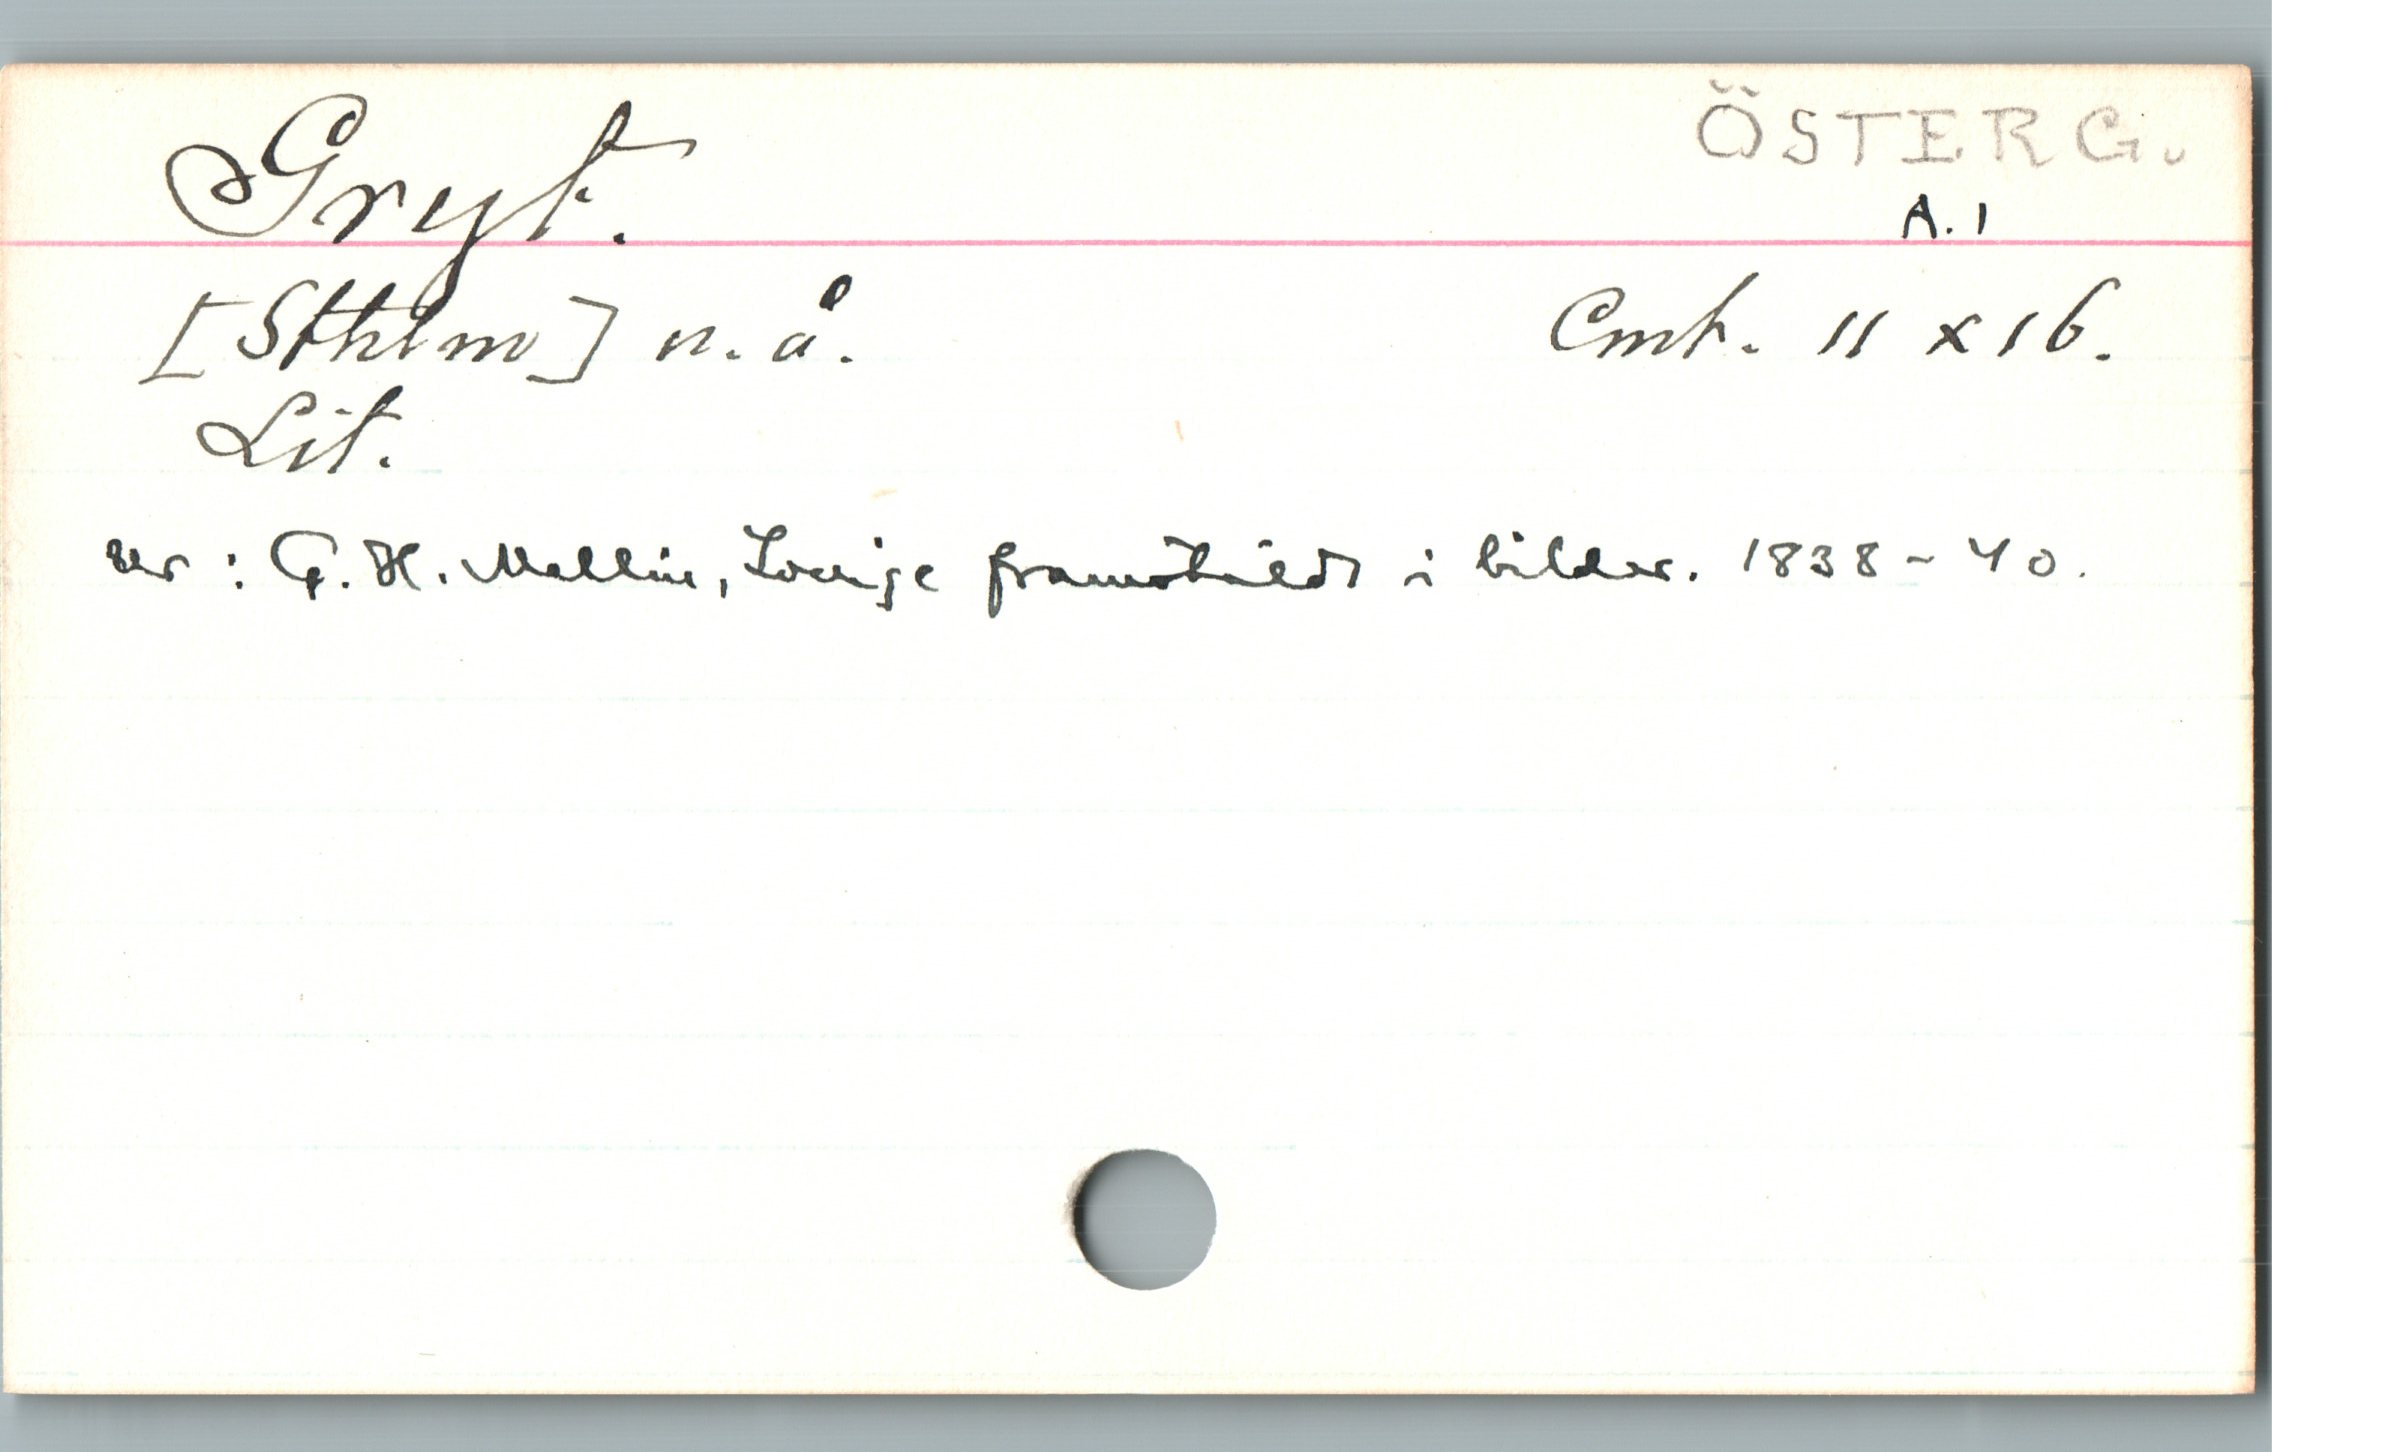 Gryt.
ÖSTERG.
A. 1
[Sthlm] n. å.
Cmt. 11 x 16.
Lit.
ur : G. H. Mellin, Sverige framstäldt i bilder. 1838-40.